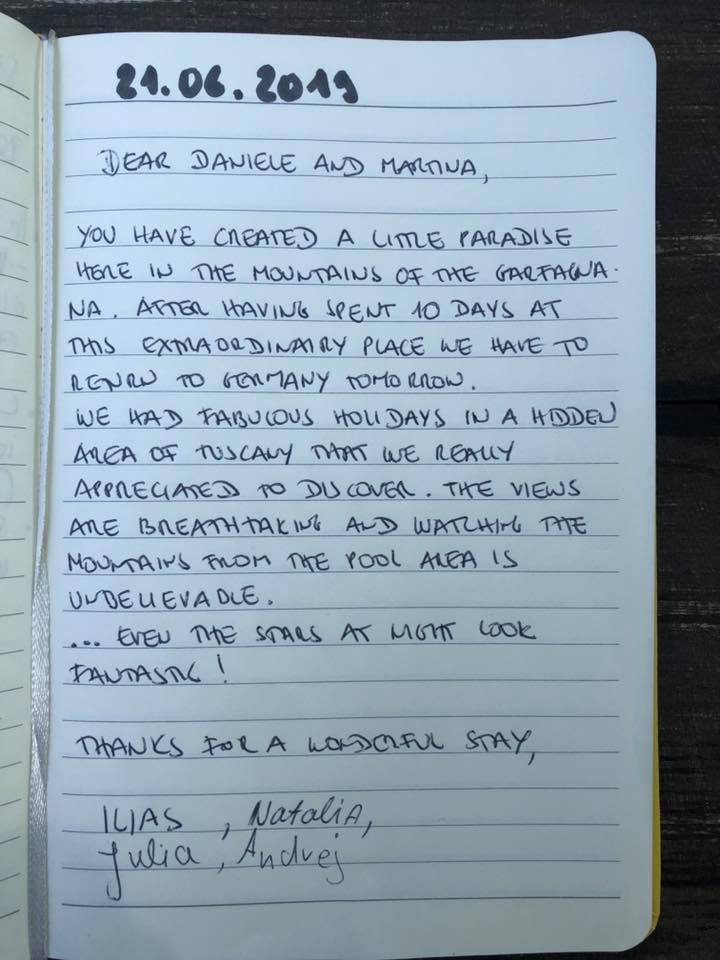 21.06.2019
DEAR DANIELE AND MARTINA,
YOU HAVE CREATED A LITTLE PARADISE
HERE IN THE MOUNTAINS OF THE GARFAGNA-
NA. AFTER HAVING SPENT 10 DAYS AT
THIS EXTRAORDINAIRY PLACE WE HAVE TO
RETURN TO GERMANY TOMORROW.
WE HAD FABULOUS HOLIDAYS IN A HIDDEN
AREA OF TUSCANY THAT WE REALLY
APPRECIATED TO DISCOVER. THE VIEWS
ARE BREATHTAKING AND WATCHING THE
MOUNTAINS FROM THE POOL AREA IS
UNBELIEVABLE.
... EVEN THE STARS AT NIGHT LOOK
FANTASTIC!
THANKS FOR A WONDERFUL STAY,
ILIAS, Natalia,
Julia, Andrej